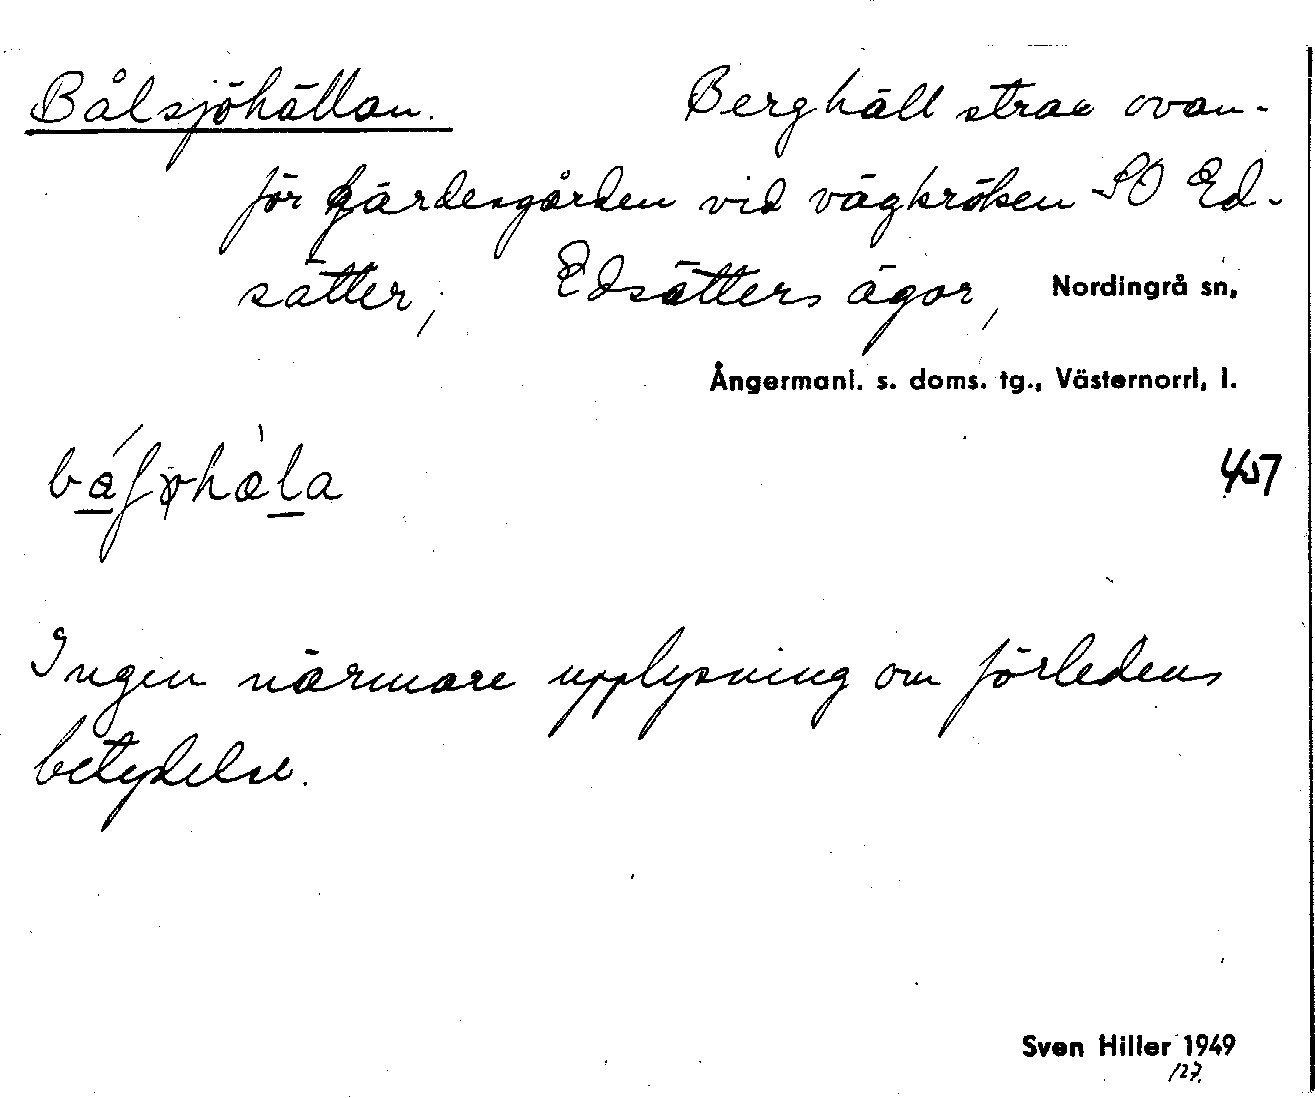 Bålsjöhällan. Berghäll strax ovan-
för gärdesgården vid vägkröken SO Ed-
sätter, Edsätters ägor, Nordingrå sn,
Ångermanl. s. doms. tg., Västernorrl, l.
457
Ingen närmare upplysning om förledens
betydelse.
Sven Hiller 1949
127.